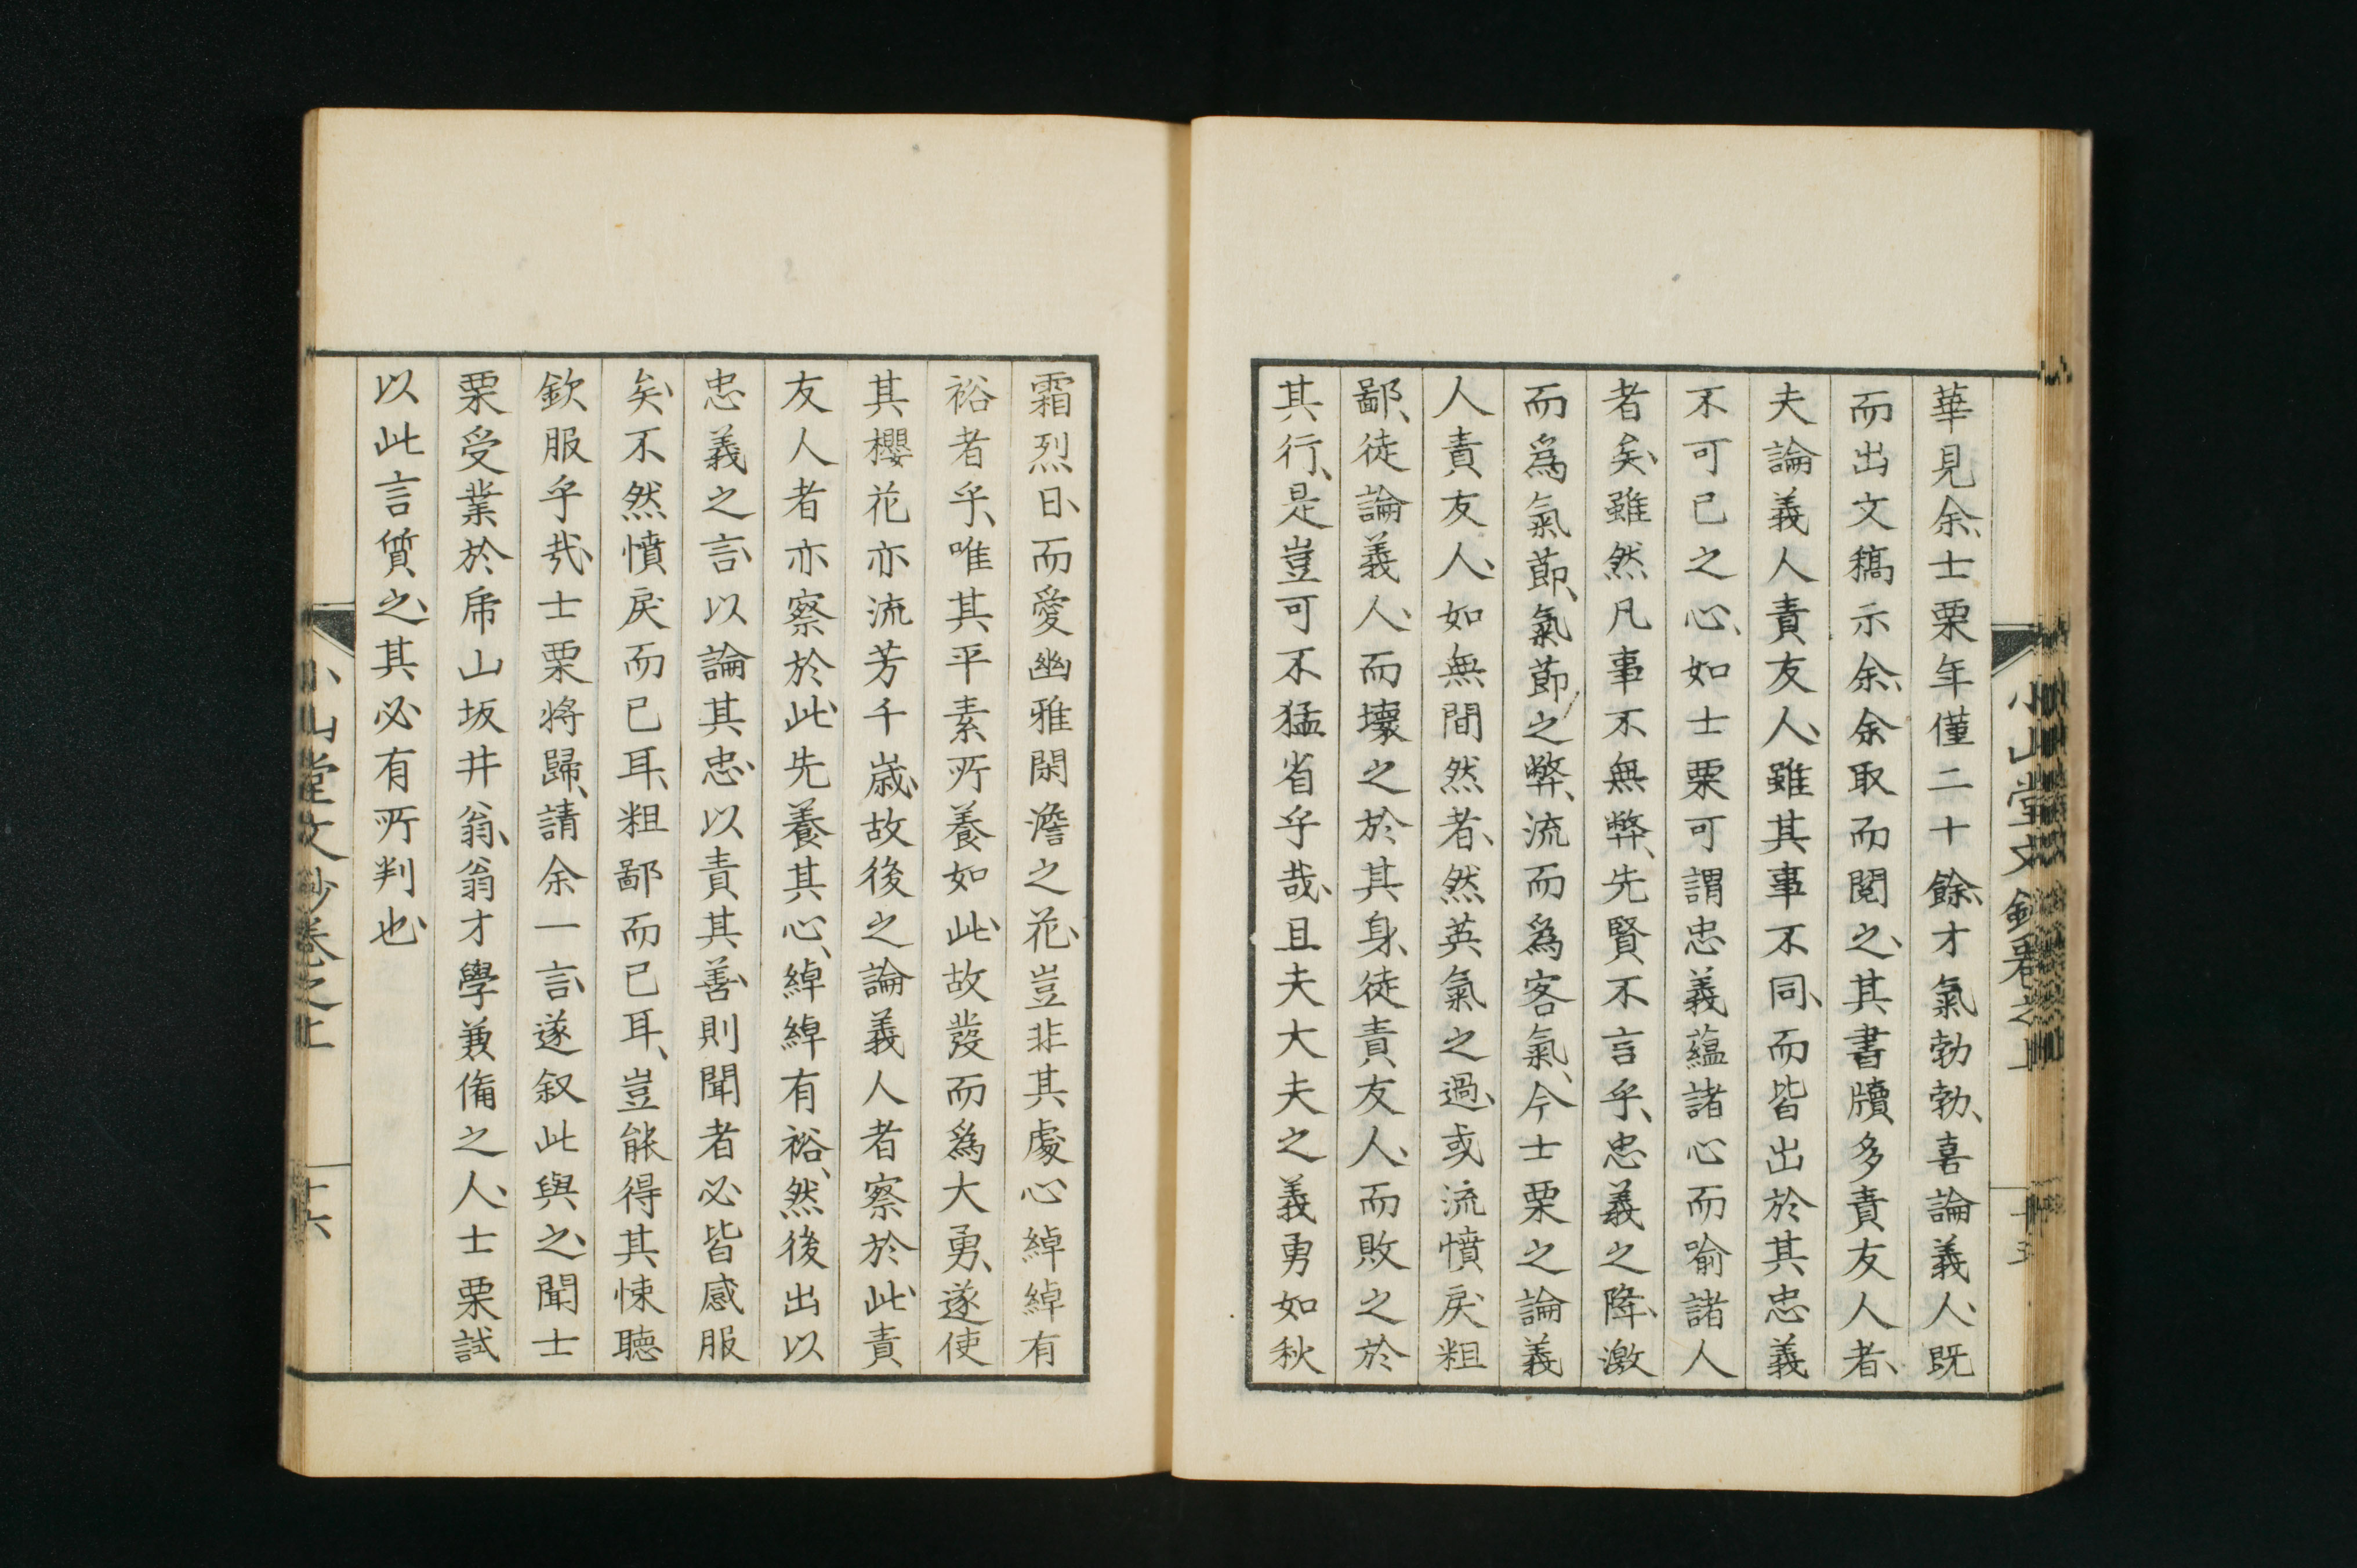 華見余、士栗年僅二十餘、才氣勃勃、喜論義人、既
而出文稿示余、余取而閱之、其書牘多責友人者、
夫論義人責友人、雖其事不同、而皆出於其忠義
不可已之心、如士栗可謂忠義蘊諸心而喻諸人
者矣、雖然凡事不無弊、先賢不言乎、忠義之降、激
而爲氣節、氣節之弊、流而爲客氣、今士栗之論義
人責友人、如無間然者、然英氣之過、或流憤戾粗
鄙、徒論義人、而壞之於其身、徒責友人、而敗之於
其行、是豈可不猛省乎哉、且夫大夫之義勇如秋
小山堂文鈔卷之上
十五
霜烈日、而愛幽雅閑澹之花、豈非其處心綽綽有
裕者乎、唯其平素所養如此、故發而爲大勇、遂使
其櫻花亦流芳千歲、故後之論義人者察於此、責
友人者亦察於此、先養其心、綽綽有裕、然後出以
忠義之言、以論其忠、以責其善、則聞者必皆感服
矣、不然憤戾而已耳、粗鄙而已耳、豈能得其悚聽
欽服乎哉、士栗將歸、請余一言、遂叙此與之、聞士
栗受業於帍山坂井翁、翁才學兼備之人、士栗試
以此言質之、其必有所判也、
小山堂文鈔卷之上
十六